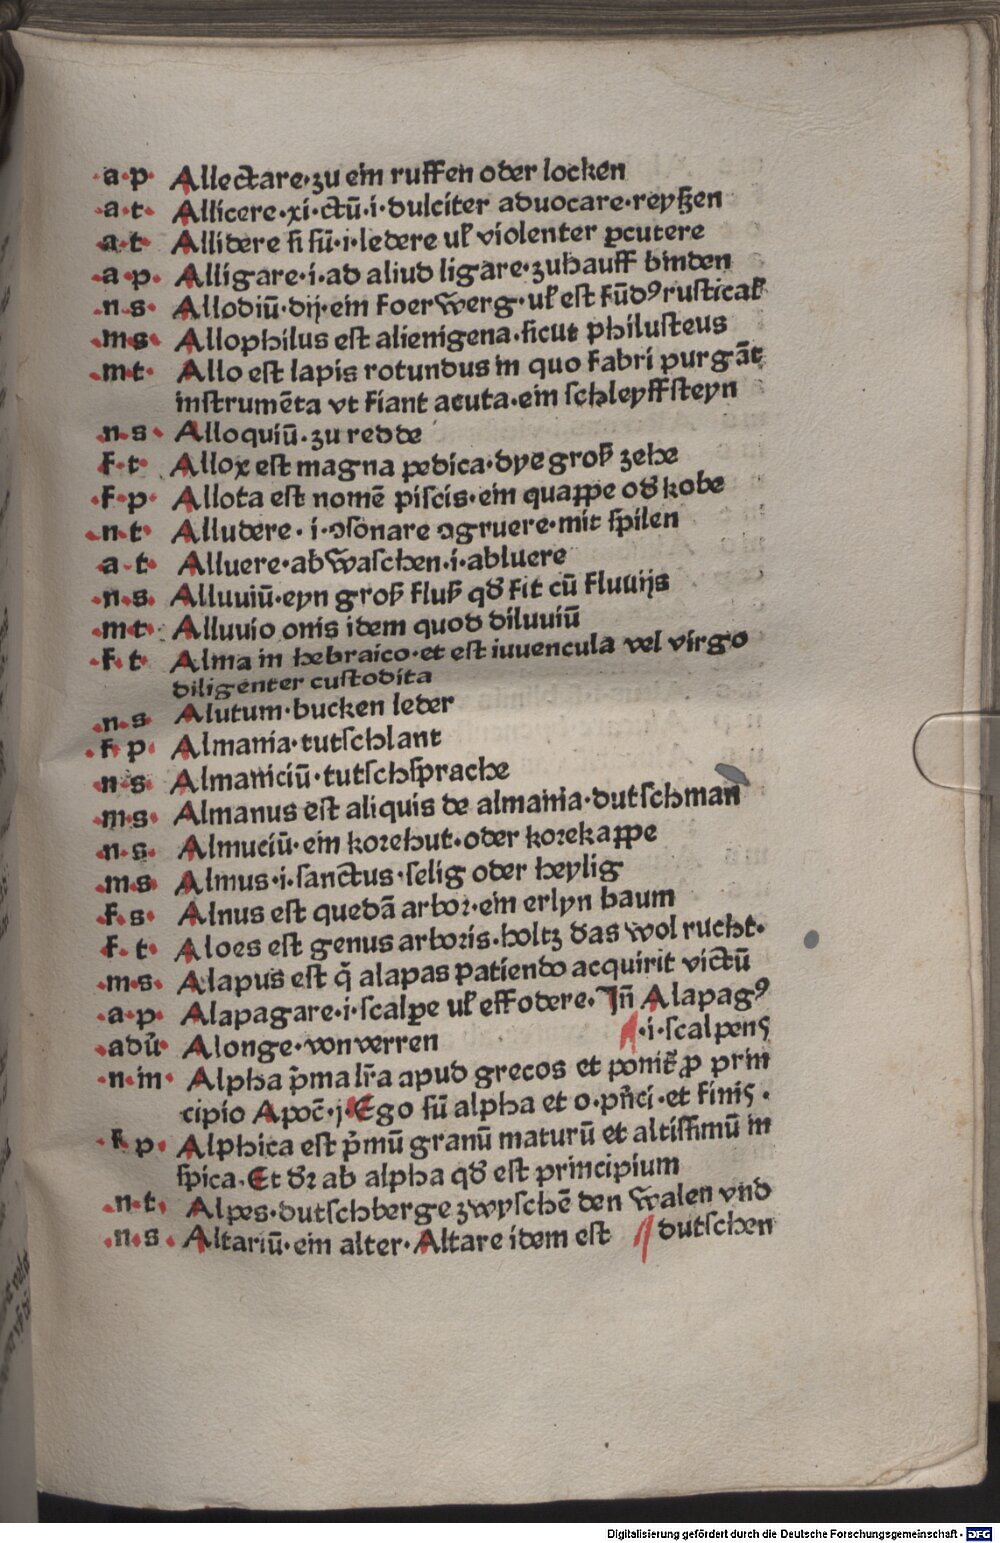 a·p· Allectare·zu ein ruffen oder locken
·a·t· Allicere·xi·ctū·i·dulciter aduocare·reyßen
a·t· Allidere si sū·i·ledere uł violenter ꝑcutere
·a·p· Alligare·i·ad aliud ligare·zuhauff binden
·n·s· Allodiū·dij·ein foerwerg·uł est fūdꝰ rusticał
·m·s· Allophilus est alienigena·sicut philusteus
·m·t· Allo est lapis rotundus in quo fabri purgāt
instrumēta vt fiant acuta·ein schleyffsteyn
·n·s· Alloquiū·zu redde
f·t· Allox est magna pedica·dye groß zehe
·f·p· Allota est nomē piscis·ein quappe od̛ kobe
·n·t· Alludere·i·ꝯsonare ꝯgruere·mit spilen
a·t· Alluere·abwaschen·i·abluere
·n·s· Alluuiū·eyn groß fluß qd̛ fit cū fluuijs
·m·t· Alluuio onis idem quod diluuiū
·f·t Alma in hebraico·et est iuuencula vel virgo
diligenter custodita
·n·s· Alutum·bucken leder
·f·p· Almania·tutschlant
·n·s· Almaniciū·tutschsprache
·m·s· Almanus est aliquis de almania·dutschman
·n·s· Almuciū·ein korehut·oder korekappe
·m·s Almus·i·sanctus·selig oder heylig
·f·s· Alnus est quedā arbor·ein erlyn baum
f·t· Aloes est genus arboris·holtz das wol rucht·
·m·s· Alapus est q̄ alapas patiendo acquirit victū
·a·p· Alapagare·i·scalpe uł effodere·Jn̄ Alapagꝰ
·i·scalpens
·adū· Alonge·von verren
·n·in· Alpha p̄ma lr̄a apud grecos et ponit̛ ꝓ prin
cipio Apoc̄·j·Ego sū alpha et o·pn̄ci·et finis·
·f·p· Alphica est p̄mū granū maturū et altissimū in
spica·Et dr̄ ab alpha qd̛ est principium
·n·t· Alpes·dutschberge zwyschē den walen vnd
dutschen
·n·s· Altariū·ein alter·Altare idem est
Digitalisierung gefördert durch die Deutsche Forschungsgemeinschaft · DFG